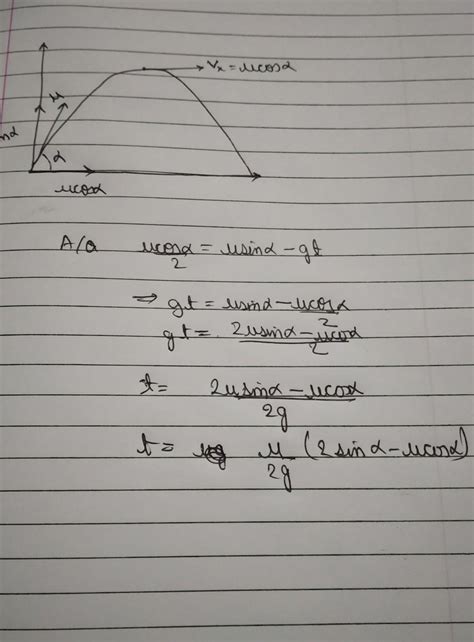 Vx = ucosα
u
nα
α
ucosα
A/q ucosα/2 = usinα - gt
⇒ gt = usinα - ucosα/2
gt = 2usinα - ucosα/2
t = 2usinα - ucosα/2g
t = u/2g (2sinα - ucosα)